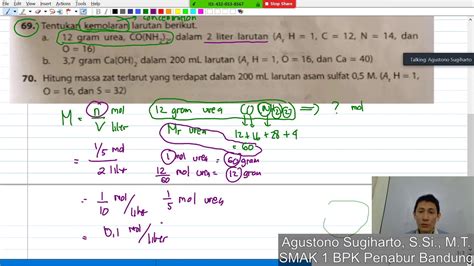 Stop Share
concentration
69. Tentukan kemolaran larutan berikut.
a. 12 gram urea, CO(NH₂)₂ dalam 2 liter larutan (Aᵣ H = 1, C = 12, N = 14, dan
O = 16)
b. 3,7 gram Ca(OH)₂ dalam 200 mL larutan (Aᵣ H = 1, O = 16, dan Ca = 40)
70. Hitung massa zat terlarut yang terdapat dalam 200 mL larutan asam sulfat 0,5 M. (Aᵣ H = 1,
O = 16, dan S = 32)
Talking: Agustono Sugiharto
M = n mol
V liter
12 gram urea CO(NH₂)₂ => ? mol
Mr urea
12+16+28+4
= 60
= 1/5 mol
2 liter
1 mol urea = 60 gram
12/60 mol urea = 12 gram
= 1/10 mol/liter
1/5 mol urea
= 0,1 mol/liter
Agustono Sugiharto, S.Si., M.T.
SMAK 1 BPK Penabur Bandung